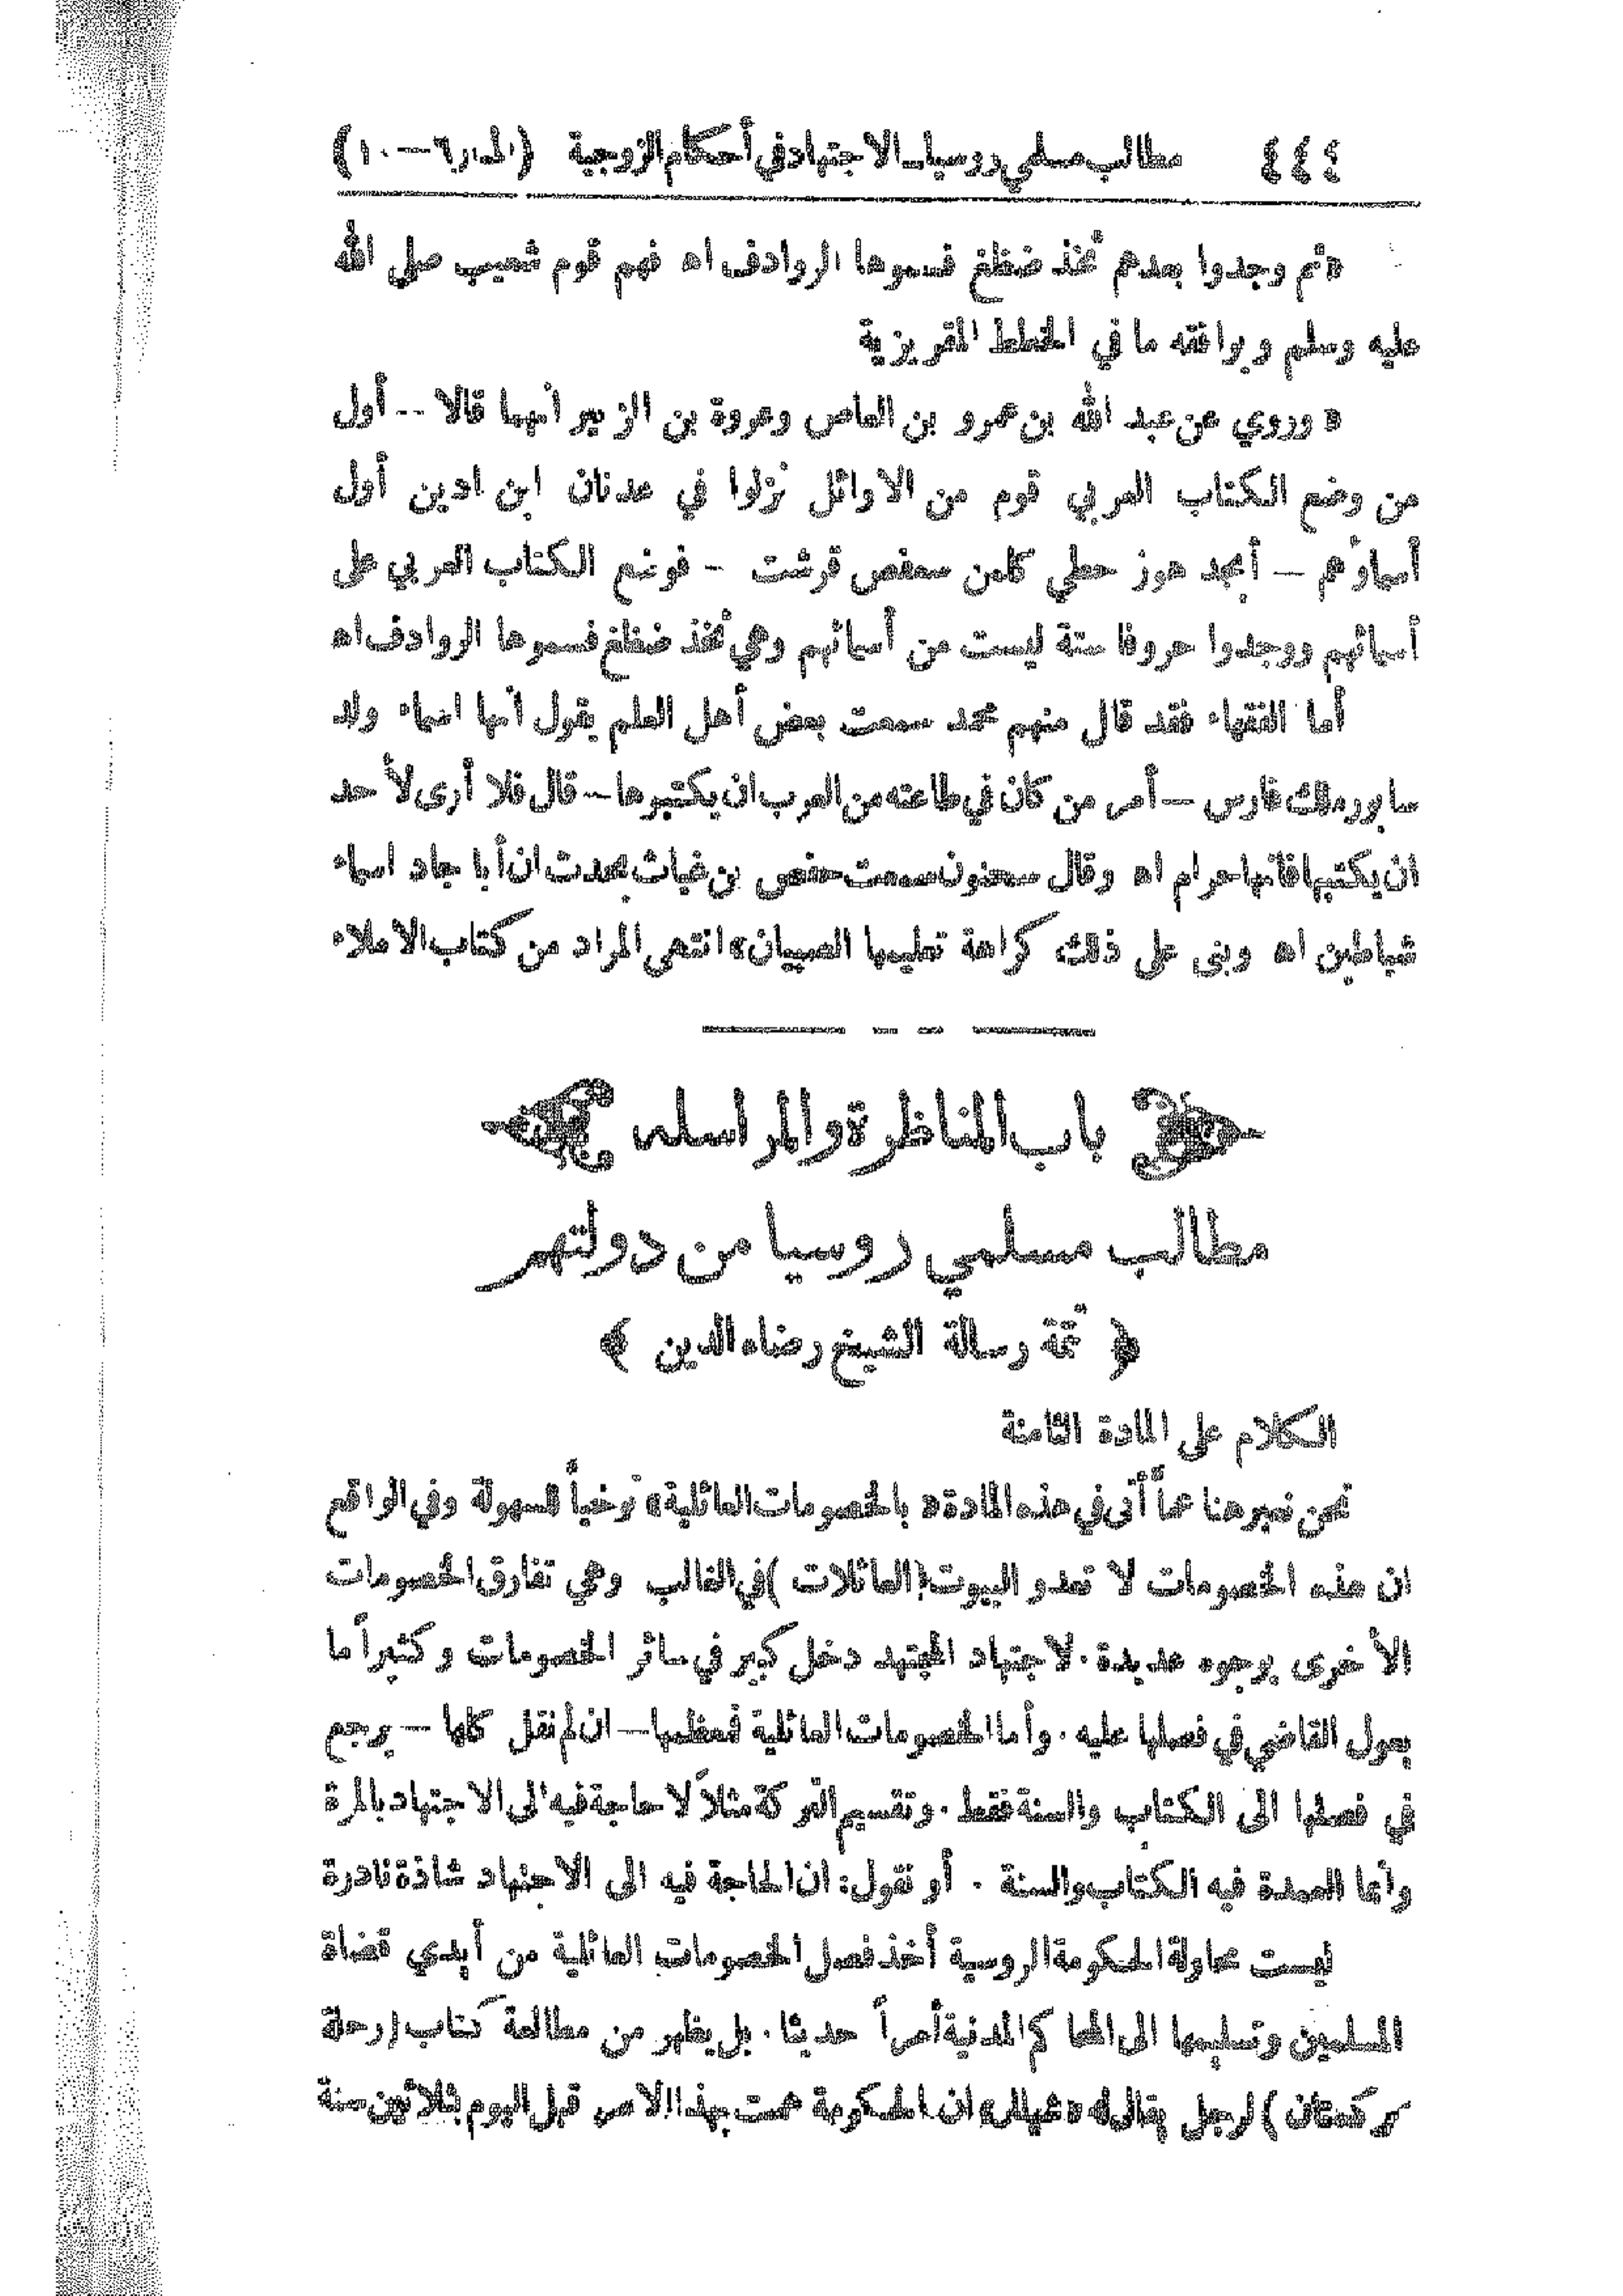 ٤٤٤ مطالب مسلمي روسيا. الاجتهاد في أحكام الزوجية (المنار ٦—١٠)
«ثم وجدوا بعدهم ثخذ ضظغ فسموها الروادف اه فهم قوم شعيب صلى الله
عليه وسلم ويوافقه ما في الخطط المقريزية
« وروي عن عبد الله بن عمرو بن العاص وعروة بن الزبير أنهما قالا -- أول
من وضع الكتاب العربي قوم من الاوائل نزلوا في عدنان ابن ادبن أول
أسماؤهم — أبجد هوز حطي كلمن سعفص قرشت - فوضع الكتاب العربي على
أسمائهم ووجدوا حروفا ستة ليست من أسمائهم وهي ثخذ ضظغ فسموها الروادف اه
أما الفقهاء فقد قال منهم محمد سمعت بعض أهل العلم يقول أنها اسماء ولد
سابور ملك فارس — أمر من كان في طاعته من العرب ان يكتبوها — قال فلا أرى لأحد
ان يكتبها فانها حرام اه وقال سحنون سمعت حفص بن غياث يحدث ان أبا جاد اسماء
شياطين اه وبنى على ذلك كراهة تعليمها الصبيان» انتهى المراد من كتاب الاملاء
باب المناظرة والمراسلة
مطالب مسلمي روسيا من دولتهم
﴿ تتمة رسالة الشيخ رضاء الدين ﴾
الكلام على المادة الثامنة
نحن نعبر هنا عما أتى في هذه المادة « بالخصومات العائلية » توخياً للسهولة وفي الواقع
ان هذه الخصومات لا تعدو البيوت (العائلات) في الغالب وهي تفارق الخصومات
الأخرى بوجوه عديدة. لاجتهاد المجتهد دخل كبير في سائر الخصومات وكثيراً ما
يعول القاضي في فصلها عليه. وأما الخصومات العائلية فمعظمها — ان لم نقل كلها — يرجع
في فصلها الى الكتاب والسنة فقط. وتقسيم التركة مثلاً لا حاجة فيه الى الاجتهاد بالمرة
وانما العمدة فيه الكتاب والسنة . أو نقول: ان الحاجة فيه الى الاجتهاد شاذة نادرة
ليست محاولة الحكومة الروسية أخذ فصل الخصومات العائلية من أيدي قضاة
المسلمين وتسليمها الى المحاكم المدنية أمراً حديثا. بل يظهر من مطالعة كتاب (رحلة
تركستان) لرجل يقال له ان الحكومة همت بهذا الامر قبل اليوم بثلاثين سنة